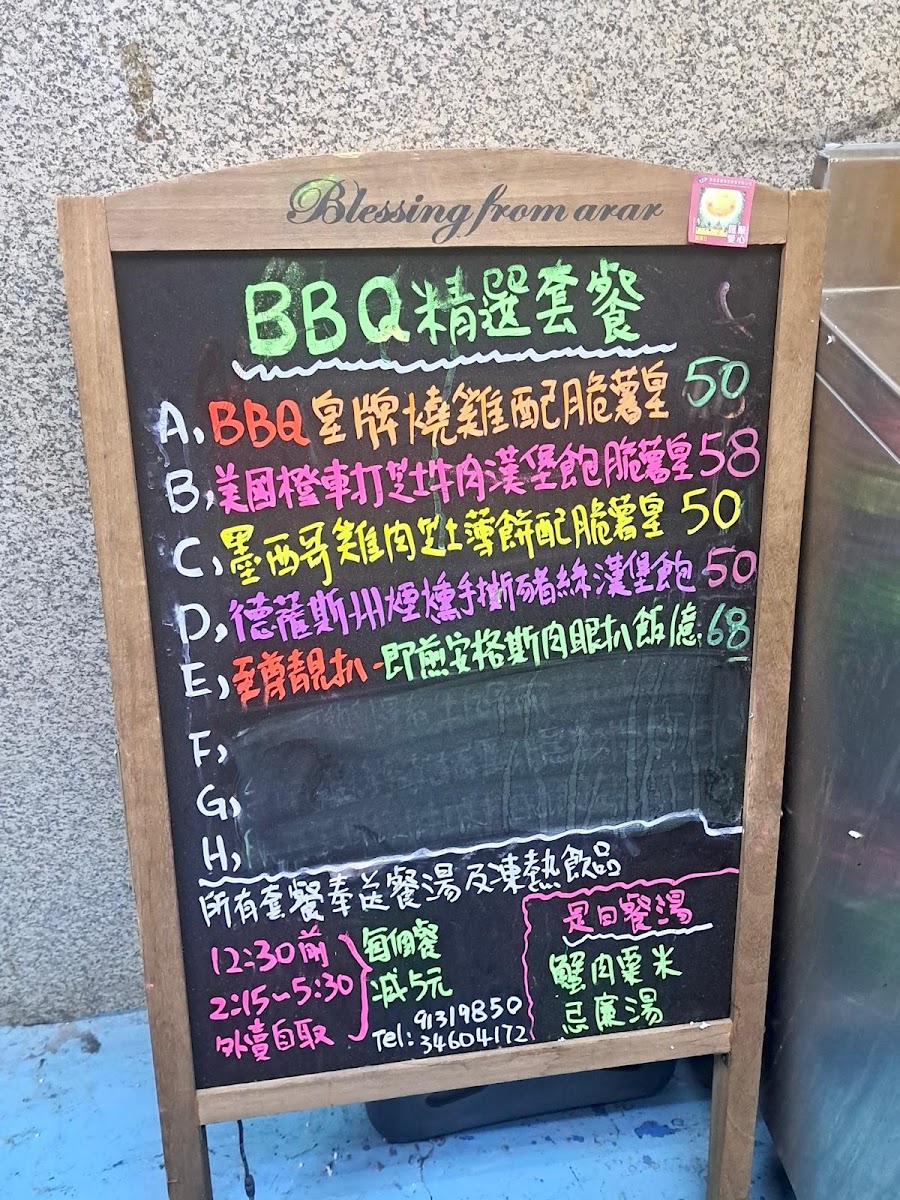 Blessing from arar
BBQ精選套餐
A, BBQ皇牌燒雞配脆薯皇 50
B, 美國橙車打芝士牛肉漢堡飽脆薯皇 58
C, 墨西哥雞肉芝士薄餅配脆薯皇 50
D, 德薩斯州煙燻手撕豬絲漢堡飽 50
E, 至尊靚扒-即煎安格斯肉眼扒飯/意 68
F,
G,
H,
所有套餐奉送餐湯及凍熱飲品
12:30前
2:15~5:30
外賣自取
每個餐
減5元
Tel: 91319850
34604172
是日餐湯
蟹肉粟米
忌廉湯